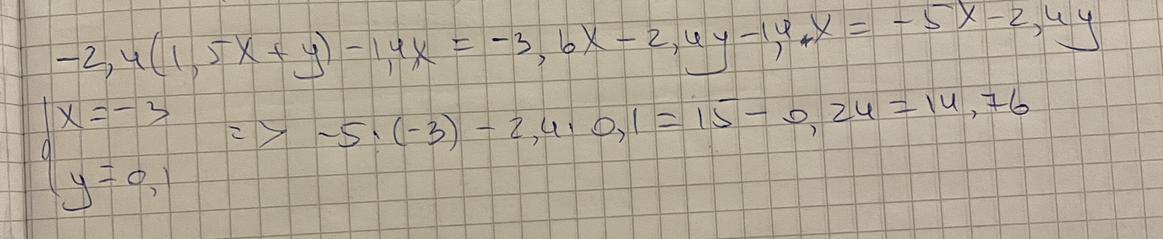 -2,4(1,5x+y)-1,4x = -3,6x-2,4y-1,4x = -5x-2,4y
{x=-3 => -5·(-3)-2,4·0,1=15-0,24=14,76
y=0,1